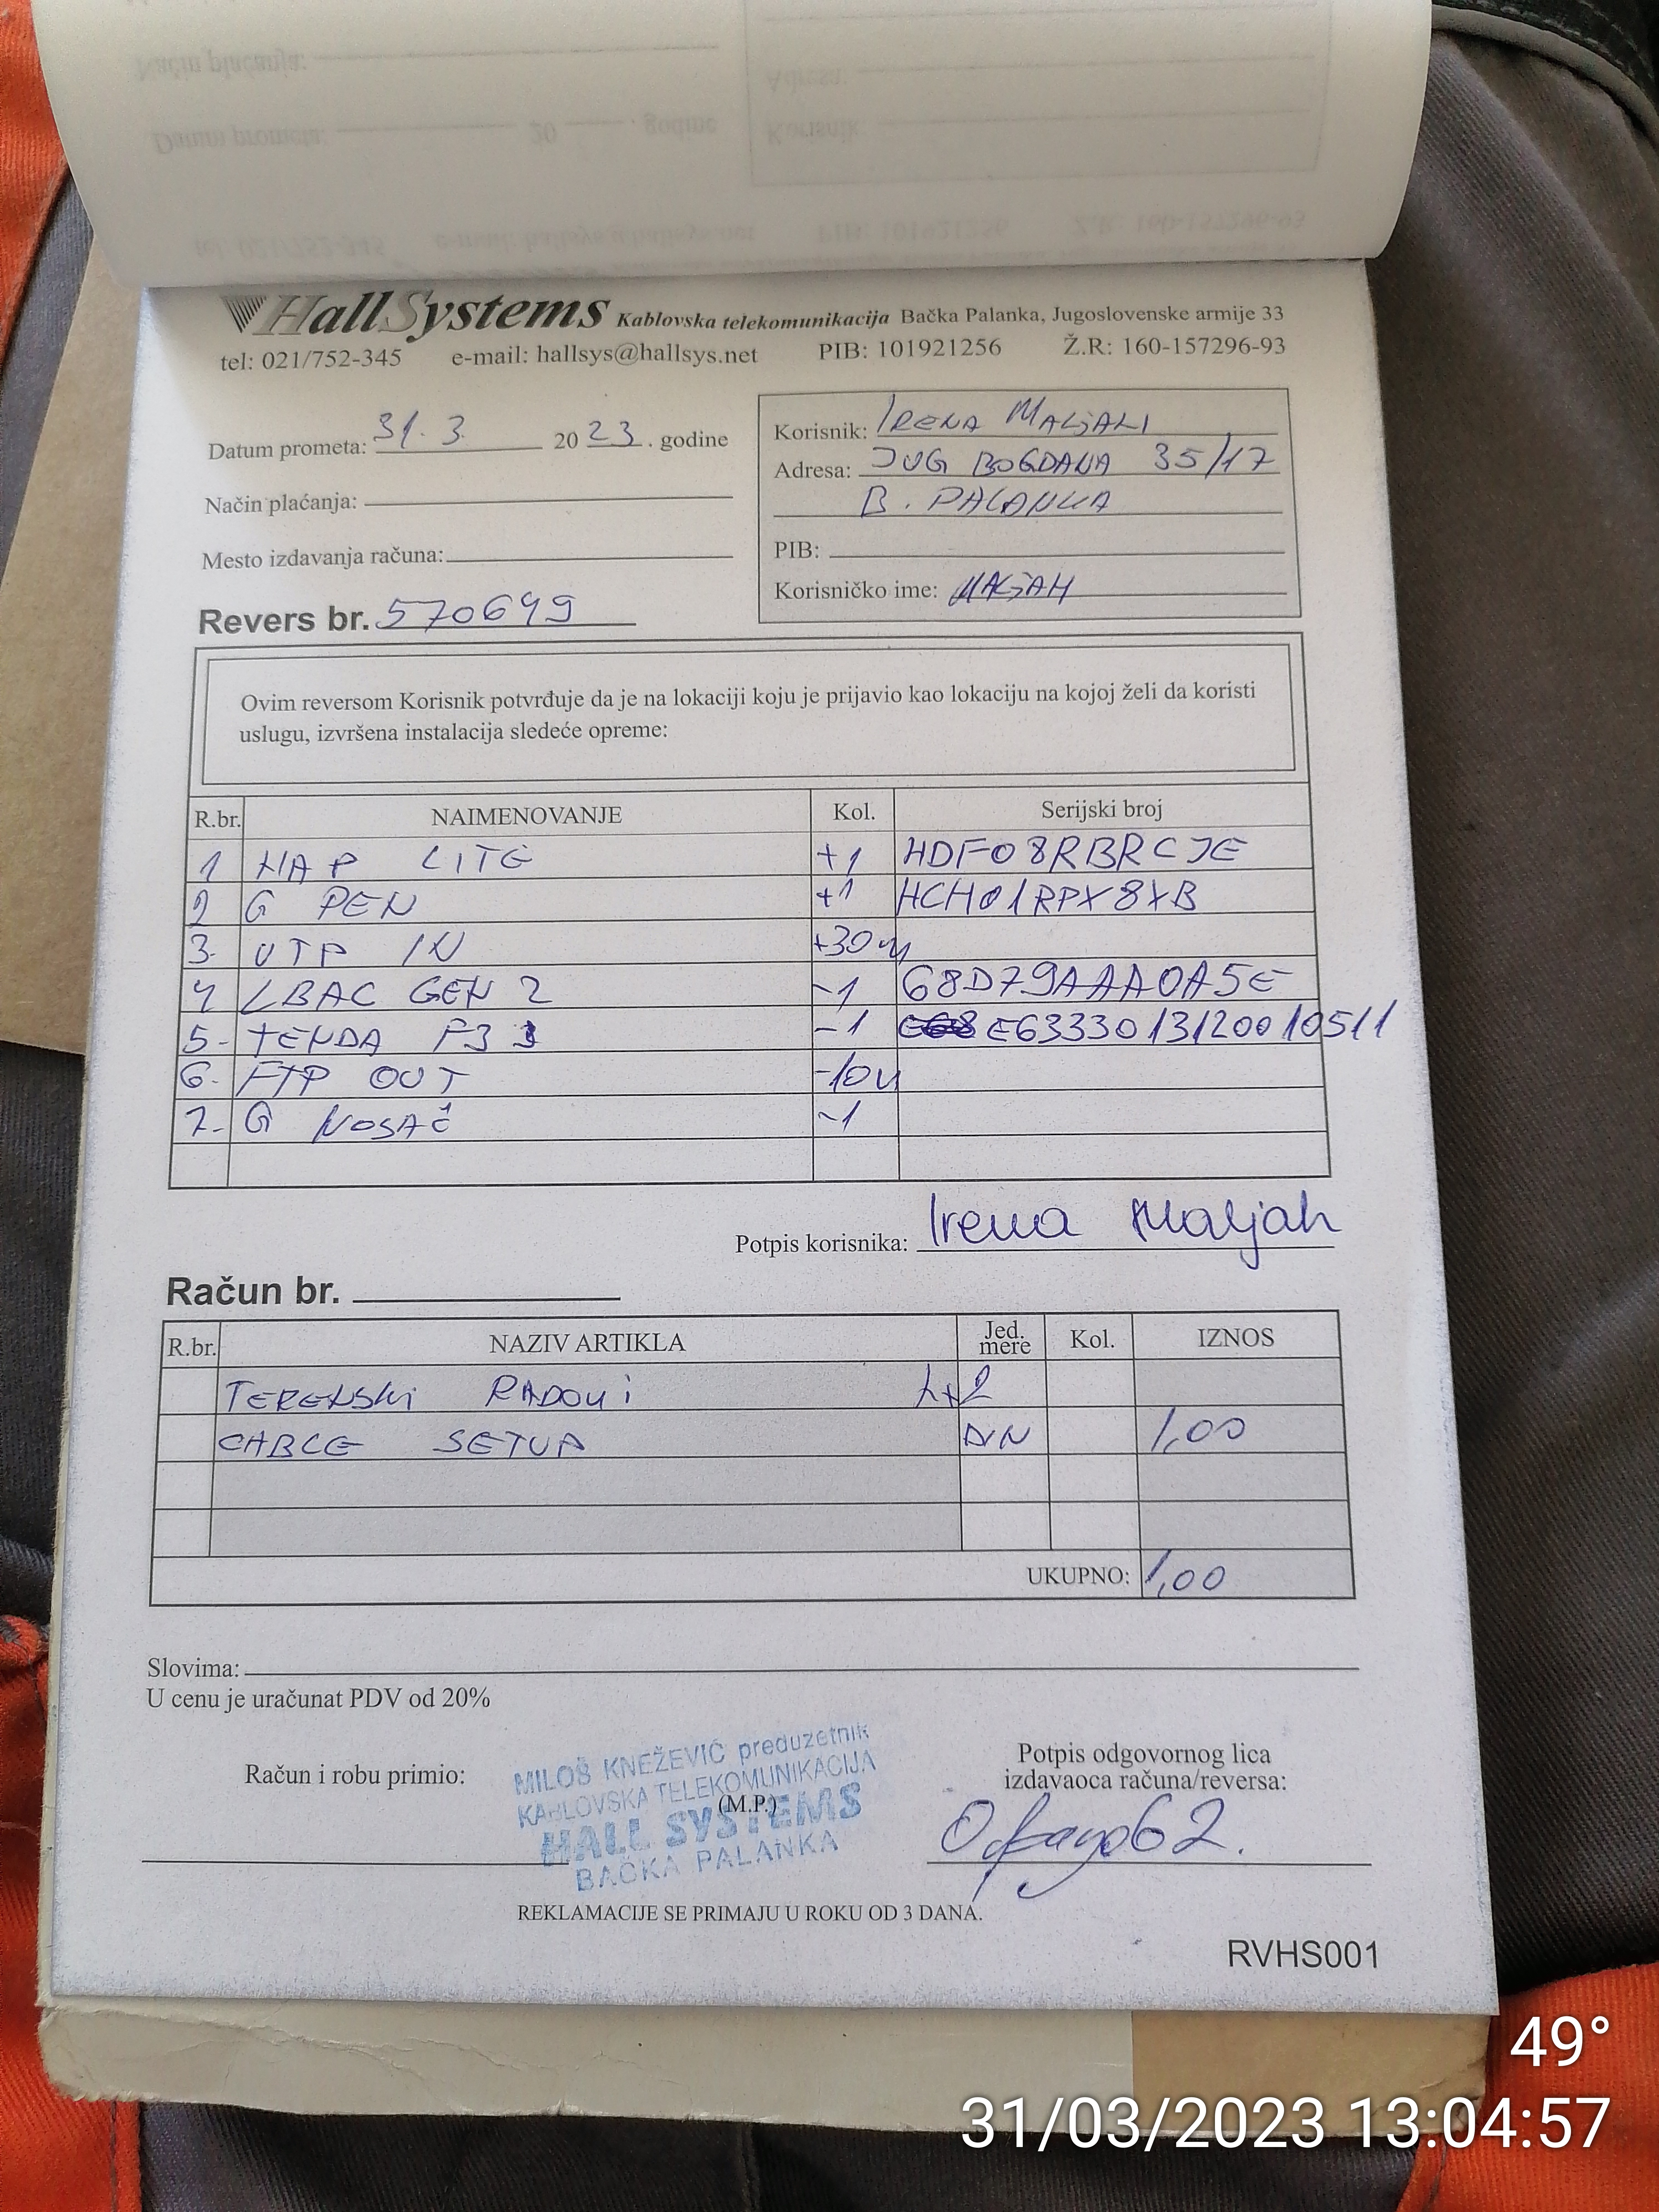 HallSystems Kablovska telekomunikacija Bačka Palanka, Jugoslovenske armije 33
tel: 021/752-345 e-mail: hallsys@hallsys.net PIB: 101921256 Ž.R: 160-157296-93
Datum prometa: 31. 3. 2023. godine
Način plaćanja:
Mesto izdavanja računa:
Revers br. 570649
Korisnik: IRENA MALJAH
Adresa: JUG BOGDANA 35/17
B. PALANKA
PIB:
Korisničko ime: MALJAH
Ovim reversom Korisnik potvrđuje da je na lokaciji koju je prijavio kao lokaciju na kojoj želi da koristi
uslugu, izvršena instalacija sledeće opreme:
R.br. NAIMENOVANJE Kol. Serijski broj
1 HAP LITE +1 HDF08RBRCJE
2 G PEN +1 HCH01RPX8XB
3. UTP IN +30m
4 LBAC GEN 2 -1 68D79AAA0A5E
5- TENDA F3 -1 E6333013120010511
6- FTP OUT -10m
7- G NOSAČ -1
Potpis korisnika: Irena Maljah
Račun br.
R.br. NAZIV ARTIKLA Jed. mere Kol. IZNOS
TERENSKI RADOVI
CABLE SETUP DIN 1,00
UKUPNO: 1,00
Slovima:
U cenu je uračunat PDV od 20%
Račun i robu primio:
MILOŠ KNEŽEVIĆ preduzetnik
KABLOVSKA TELEKOMUNIKACIJA
(M.P.)
HALL SYSTEMS
BAČKA PALANKA
Potpis odgovornog lica
izdavaoca računa/reversa:
REKLAMACIJE SE PRIMAJU U ROKU OD 3 DANA.
RVHS001
49°
31/03/2023 13:04:57